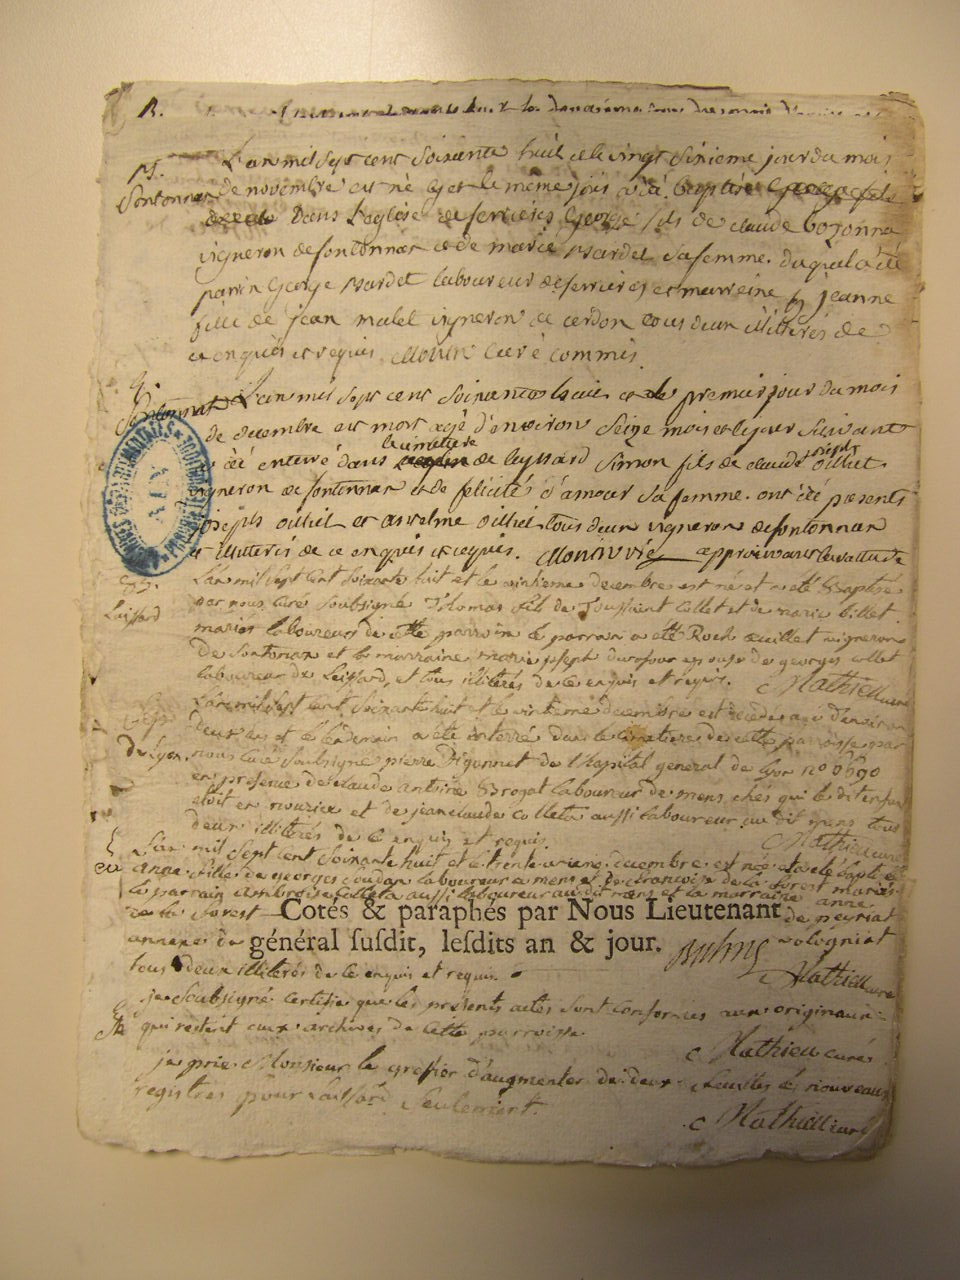 B.
B.
fontonnax
L'an mil sept cent soixante huit et le vingt sixieme jour du mois
de novembre est né et le même jour a été baptisé George fils
dans l'eglise de serrieres George fils de claude bozonna
vigneron de fontonnax et de marie Mardel sa femme. duquel a été
parrin George Mardel laboureur de serrieres et marreine jeanne
fille de jean mulet vigneron de cerdon tous deux illiterés de
ce enquis et requis. Monin curé commis
S.
fontonnax
L'an mil sept cent soixante huit et le premier jour du mois
de decembre est mort agé d'environ seize mois et le jour suivant
a été enterré dans le cimettere de leyssard Simon fils de claude joseph oilliet
vigneron de fontonnax et de felicité d'amour sa femme. ont été presents
joseph oilliet et anselme oilliet tous deux vigneron de fontonnax
et illiterés de ce enquis et requis. Monin vic
Leissard
L'an mil sept cent soixante huit et le vintieme decembre est né et a eté Baptisé
par nous curé soubsigné Thomas fils de Toussaint collet et de marie billet
mariés laboureurs de cette parroisse le parrain a eté Roch œuillet vigneron
de fontonax et la marraine marie joseph dufour epouse de georges collet
laboureur de Leissard, et tous illiterés de ce enquis et requis. C Mathieu curé
de Lyon
L'an mil sept cent soixante huit et le vintieme decembre est decedé agé d'environ
deux ans et le lendemain a eté enterré dans le cimetiere de cette paroisse par
nous curé soubsigné pierre Pigonnet de l'hopital general de lyon n° 0690
en presence de claude antoine Brogat laboureur de mens chés qui le dit enfant
etoit en nourice et de jean claude collet aussi laboureur au dit mens tous
deux illiterés de ce enquis et requis. C Mathieu curé
L'an mil sept cent soixante huit et le trente decembre est née et a eté baptisée
anne fille de georges coudax laboureur a mens et de francoise de la forest mariés
le parrain ambroise collet aussi laboureur au dit mens et la marraine anne
de la forest de peyriat
Cotés & paraphés par Nous Lieutenant
général susdit, lesdits an & jour.
annexe de Bologniat
tous deux illiterés de ce enquis et requis. C Mathieu curé
je soubsigné certifie que les présents actes sont conformes aux originaux
qui restent aux archives de cette parroisse
C Mathieu curé
je prie Monsieur le grefier d'augmenter de deux feuilles les nouveaux
registres pour Laissard seulement.
C Mathieu curé